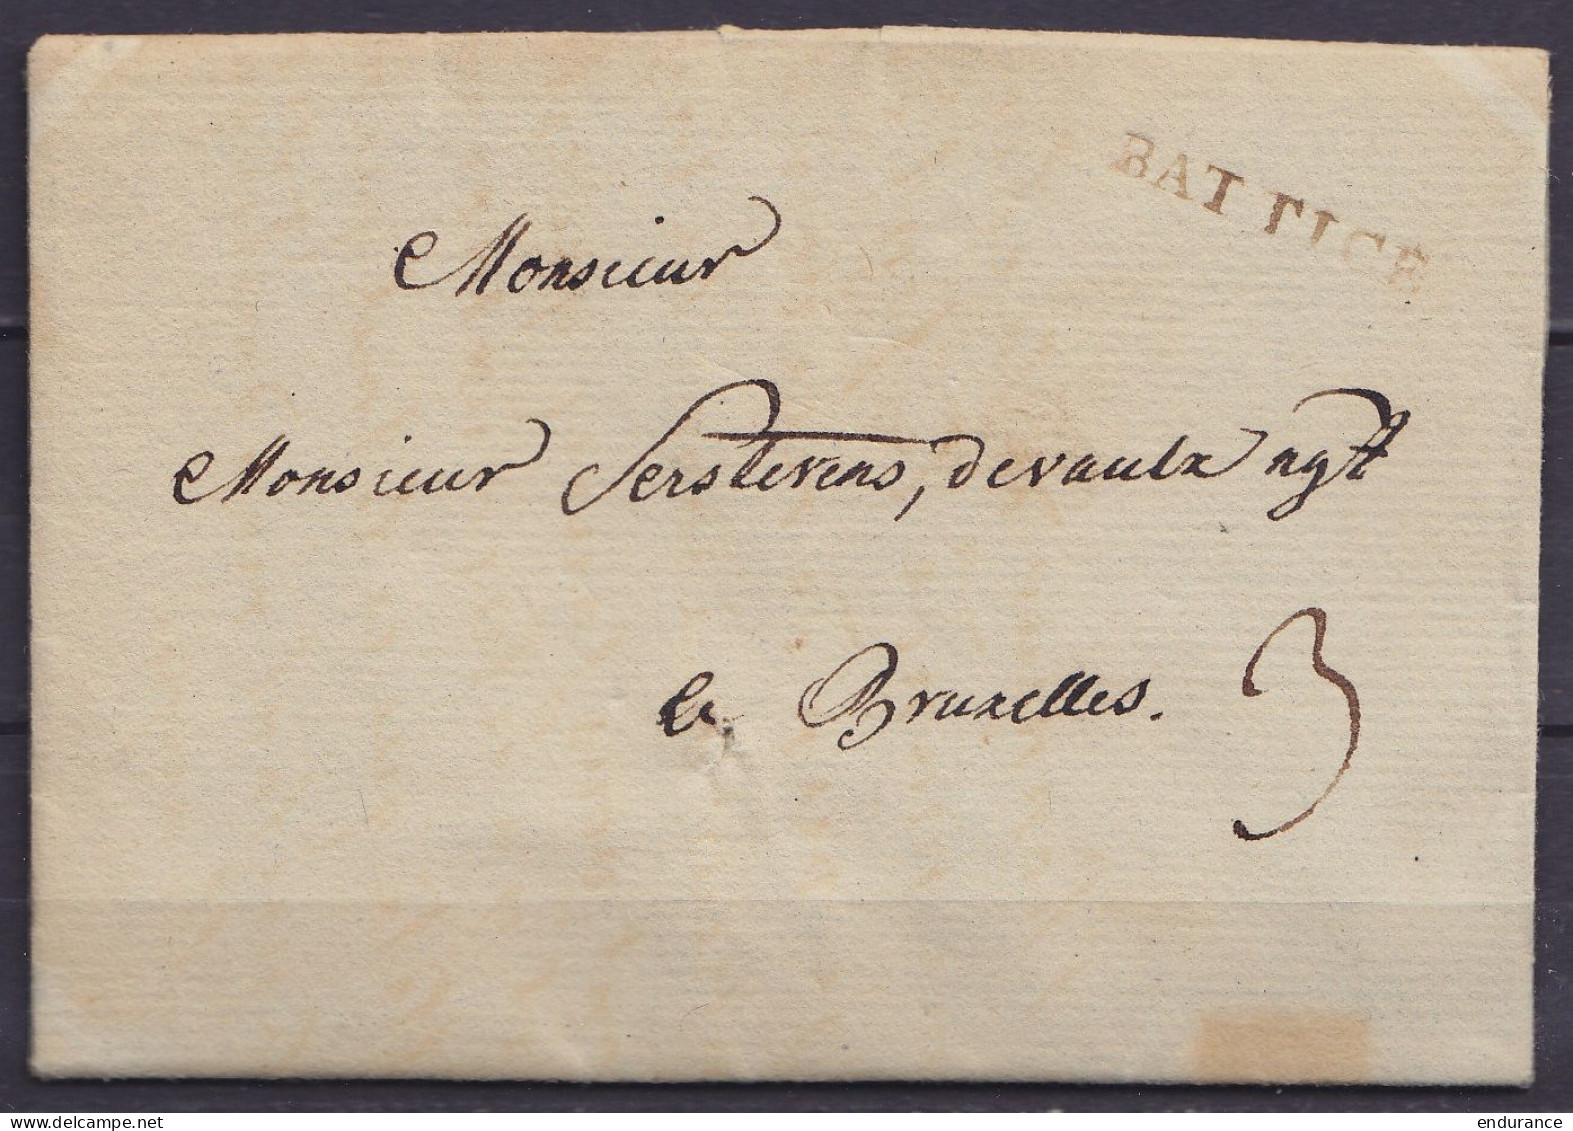 BATTICE
Monsieur
Monsieur Serstevens, devaulx ngt
a Bruxelles. 3
endurance